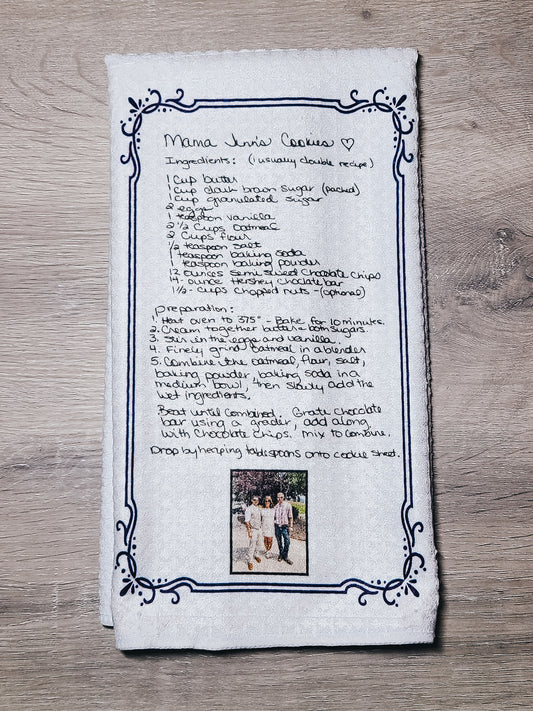 Mama Jinn's Cookies ♡
Ingredients: (I usually double recipe)
1 cup butter
1 cup dark brown sugar (packed)
1 cup granulated sugar
2 eggs
1 teaspoon vanilla
2 1/2 cups oatmeal
2 cups flour
1/2 teaspoon salt
1 teaspoon baking soda
1 teaspoon baking powder
12 ounces semi sweet chocolate chips
14- ounce Hershey choclate bar
1 1/2 - cups chopped nuts - (optional)
Preparation:
1. Heat oven to 375° - Bake for 10 minutes.
2. Cream together butter & both sugars.
3. Stir in the eggs and vanilla.
4. Finely grind oatmeal in a blender
5. Combine the oatmeal, flour, salt,
baking powder, baking soda in a
medium bowl, then slowly add the
wet ingredients.
Beat until combined. Grate chocolate
bar using a grader, add along
with chocolate chips. Mix to combine.
Drop by heaping tablespoons onto cookie sheet.